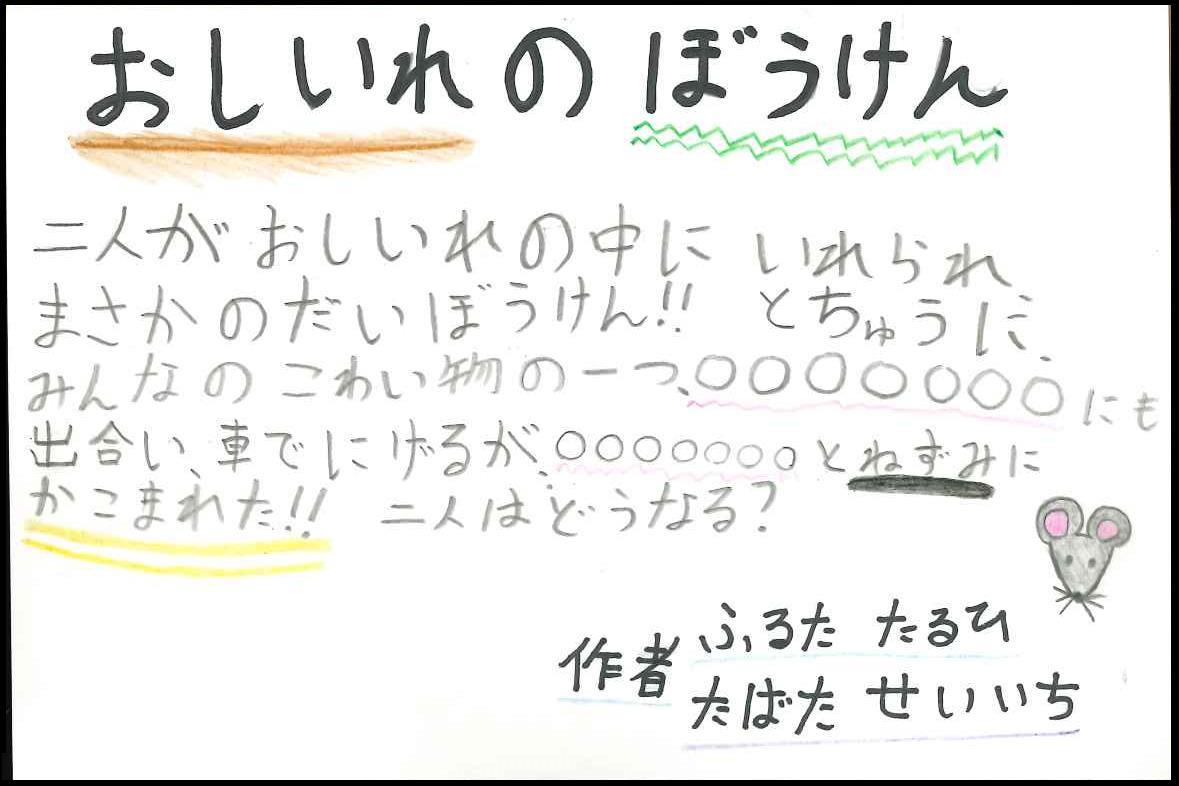 おしいれのぼうけん
二人がおしいれの中に いれられ
まさかのだいぼうけん!! とちゅうに、
みんなのこわい物の一つ、〇〇〇〇〇〇〇にも
出合い、車でにげるが、〇〇〇〇〇〇〇とねずみに
かこまれた!! 二人はどうなる?
作者 ふるた たるひ
たばた せいいち